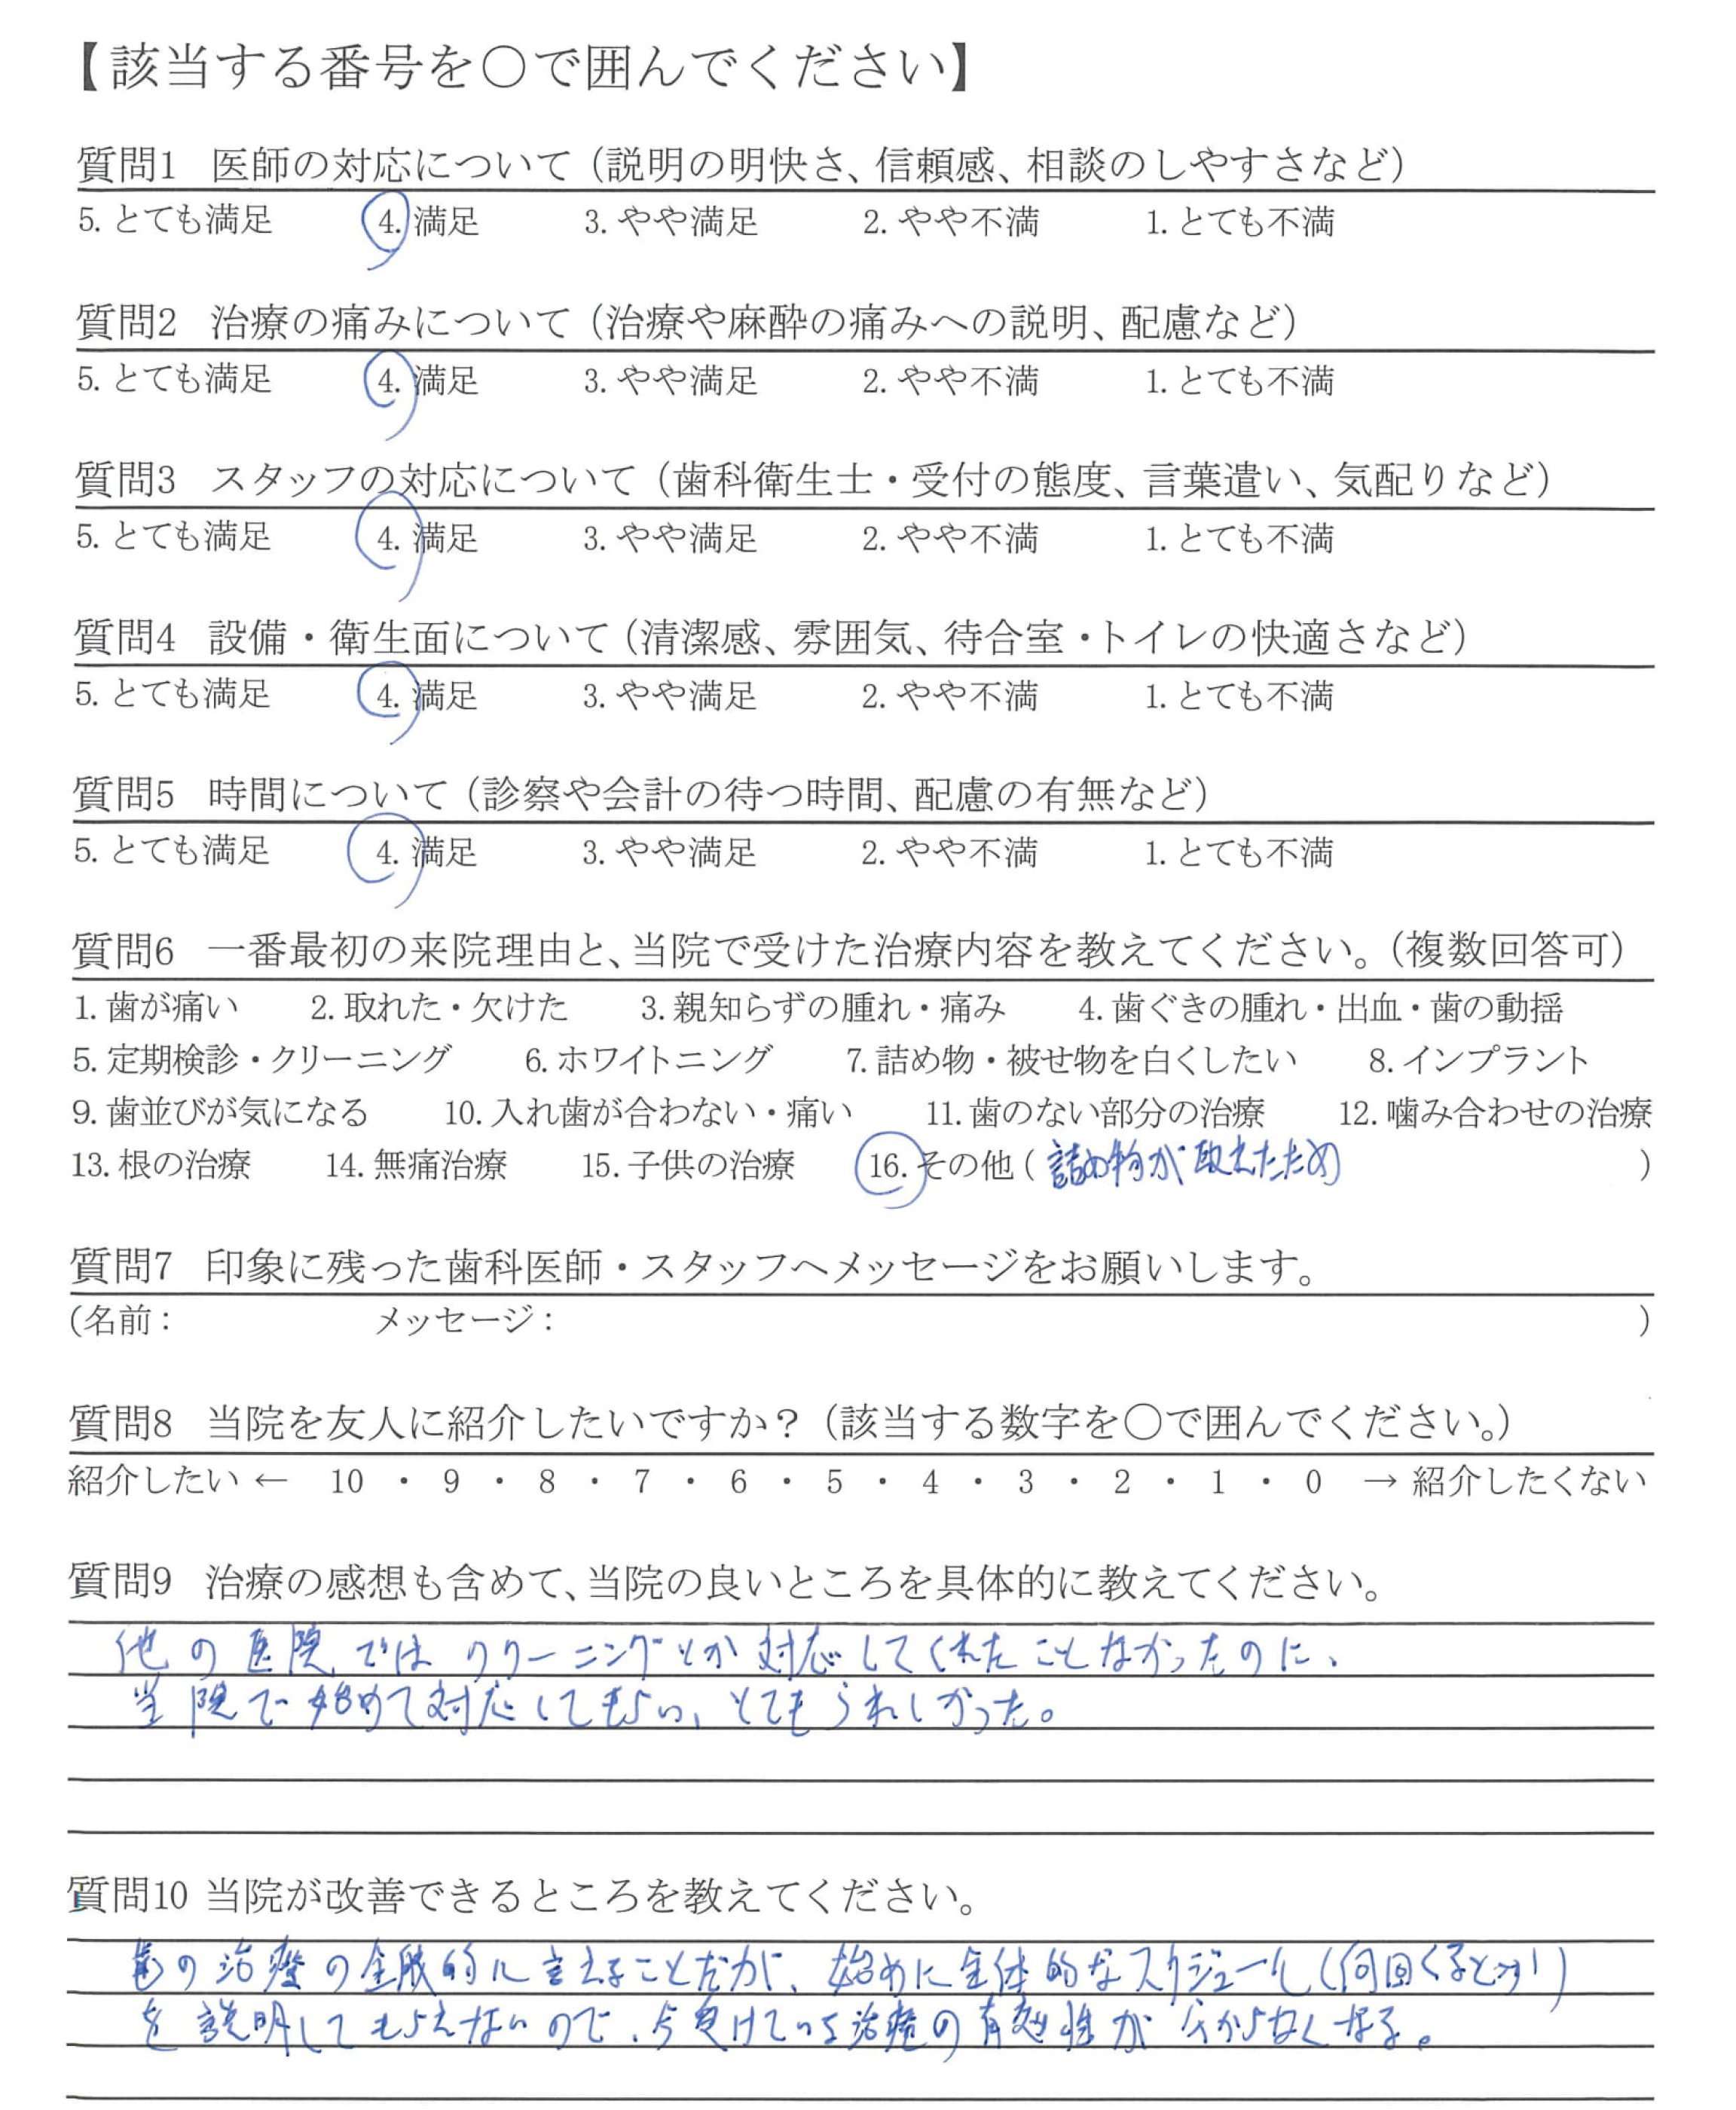 【該当する番号を〇で囲んでください】
質問1 医師の対応について（説明の明快さ、信頼感、相談のしやすさなど）
5. とても満足 4. 満足 3. やや満足 2. やや不満 1. とても不満
質問2 治療の痛みについて（治療や麻酔の痛みへの説明、配慮など）
5. とても満足 4. 満足 3. やや満足 2. やや不満 1. とても不満
質問3 スタッフの対応について（歯科衛生士・受付の態度、言葉遣い、気配りなど）
5. とても満足 4. 満足 3. やや満足 2. やや不満 1. とても不満
質問4 設備・衛生面について（清潔感、雰囲気、待合室・トイレの快適さなど）
5. とても満足 4. 満足 3. やや満足 2. やや不満 1. とても不満
質問5 時間について（診察や会計の待つ時間、配慮の有無など）
5. とても満足 4. 満足 3. やや満足 2. やや不満 1. とても不満
質問6 一番最初の来院理由と、当院で受けた治療内容を教えてください。（複数回答可）
1. 歯が痛い 2. 取れた・欠けた 3. 親知らずの腫れ・痛み 4. 歯ぐきの腫れ・出血・歯の動揺
5. 定期検診・クリーニング 6. ホワイトニング 7. 詰め物・被せ物を白くしたい 8. インプラント
9. 歯並びが気になる 10. 入れ歯が合わない・痛い 11. 歯のない部分の治療 12. 噛み合わせの治療
13. 根の治療 14. 無痛治療 15. 子供の治療 16. その他（詰め物が取れたため）
質問7 印象に残った歯科医師・スタッフへメッセージをお願いします。
（名前： メッセージ： ）
質問8 当院を友人に紹介したいですか？（該当する数字を〇で囲んでください。）
紹介したい ← 10 ・ 9 ・ 8 ・ 7 ・ 6 ・ 5 ・ 4 ・ 3 ・ 2 ・ 1 ・ 0 → 紹介したくない
質問9 治療の感想も含めて、当院の良いところを具体的に教えてください。
他の医院ではクリーニングとか対応してくれたことなかったのに、
当院で始めて対応してもらい、とてもうれしかった。
質問10 当院が改善できるところを教えてください。
歯の治療の全般的に言えることだが、始めに全体的なスケジュール（何回くるとか）
を説明してもらえないので、今受けている治療の有効性が分からなくなる。